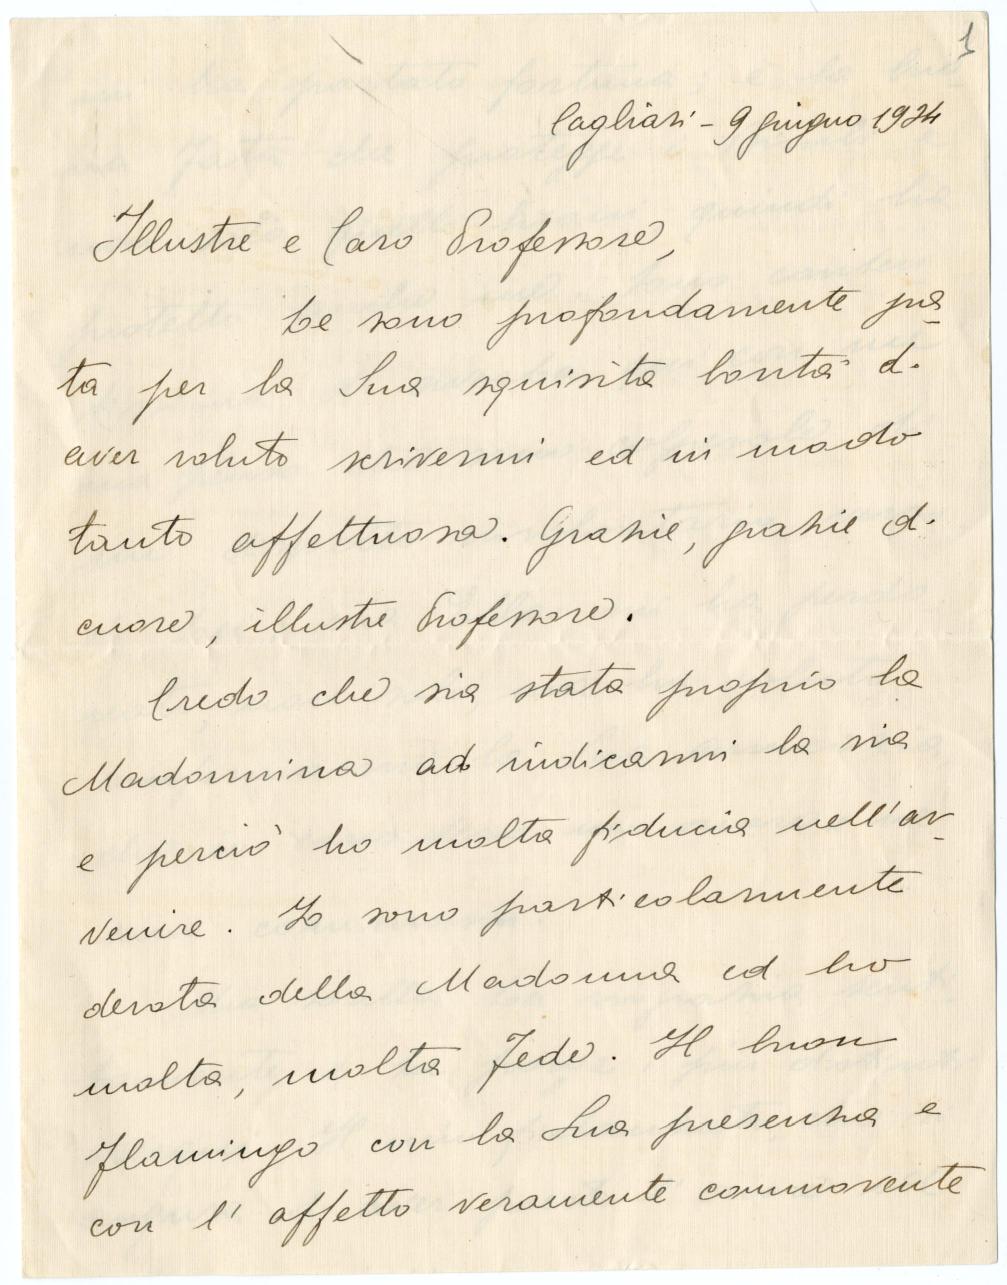 1
Cagliari - 9 giugno 1934
Illustre e Caro Professore,
Le sono profondamente gra-
ta per la Sua squisita bontà di
aver voluto scrivermi ed in modo
tanto affettuoso. Grazie, grazie di
cuore, illustre Professore.
Credo che sia stata proprio la
Madonnina ad indicarmi la via
e perciò ho molta fiducia nell'av-
venire. Io sono particolarmente
devota della Madonna ed ho
molta, molta Fede. Il buon
Flamingo con la Sua presenza e
con l'affetto veramente commovente